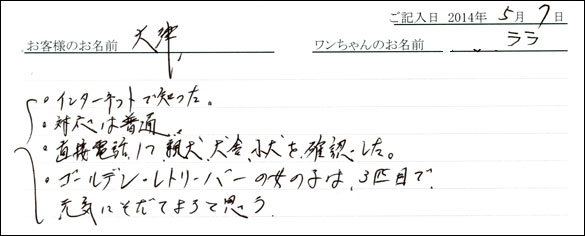 ご記入日 2014年 5月 7日
お客様のお名前 大津 ワンちゃんのお名前 ララ
・インターネットで知った。
・対応は普通。
・直接電話して親犬、犬舎、小犬を確認した。
・ゴールデン・レトリーバーの女の子は、3匹目で
元気にそだてようと思う